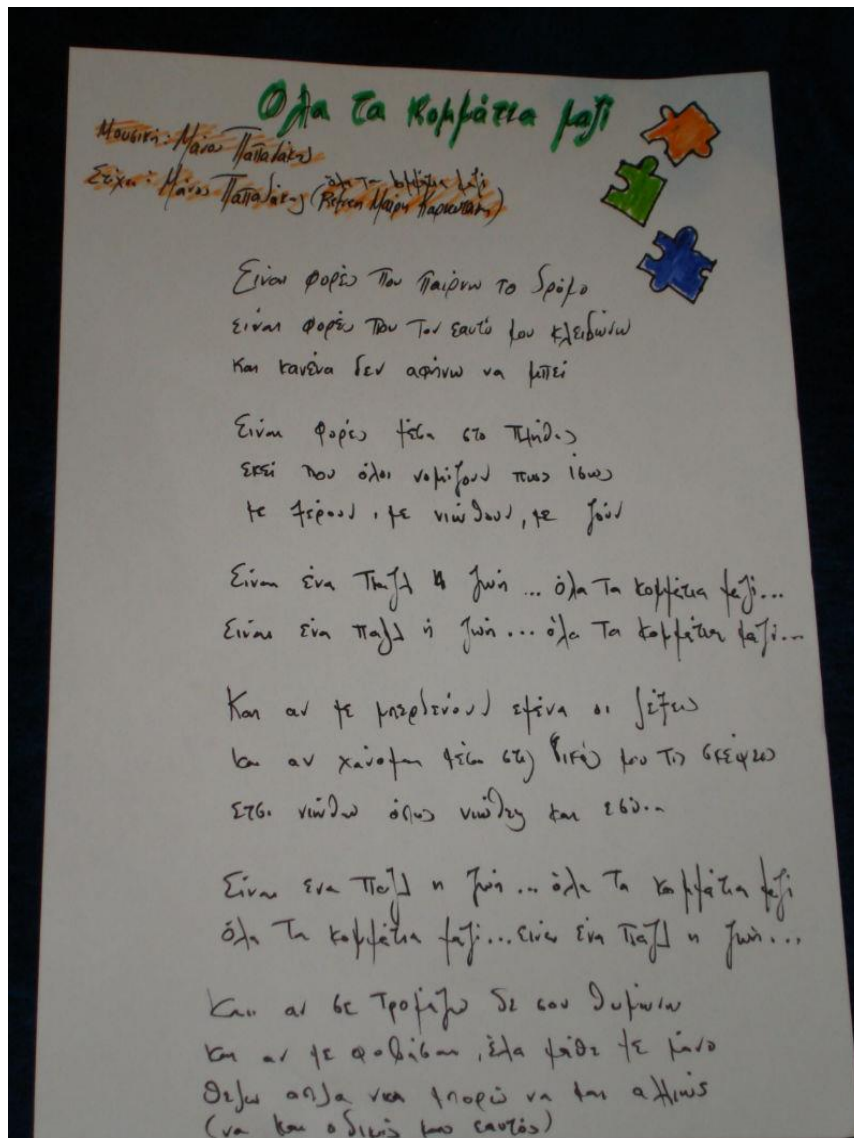 Όλα τα κομμάτια μαζί
Μουσική: Μάνος Παπαδάκης
Στίχοι: Μάνος Παπαδάκης (Refren Μαίρη
όλα τα κομμάτια μαζί
Είναι φορές που παίρνω το δρόμο
είναι φορές που τον εαυτό μου κλειδώνω
και κανένα δεν αφήνω να μπει
Είναι φορές μέσα στο πλήθος
εκεί που όλοι νομίζουν πως ίσως
με ξέρουν, με νιώθουν, με ζουν
Είναι ένα παζλ η ζωή ... όλα τα κομμάτια μαζί...
Είναι ένα παζλ η ζωή ... όλα τα κομμάτια μαζί...
Και αν με μπερδεύουν εμένα οι λέξεις
και αν χάνομαι μέσα στις δικές μου τις σκέψεις
έτσι νιώθω όπως νιώθεις και εσύ...
Είναι ένα παζλ η ζωή ... όλα τα κομμάτια μαζί
όλα τα κομμάτια μαζί ... είναι ένα παζλ η ζωή...
Και αν σε τρομάζω δε σου θυμώνω
και αν με φοβάσαι, έλα μάθε με μόνο
θέλω απλά να μπορώ να μαι αλλιώς
(να και ο δικός μου εαυτός)